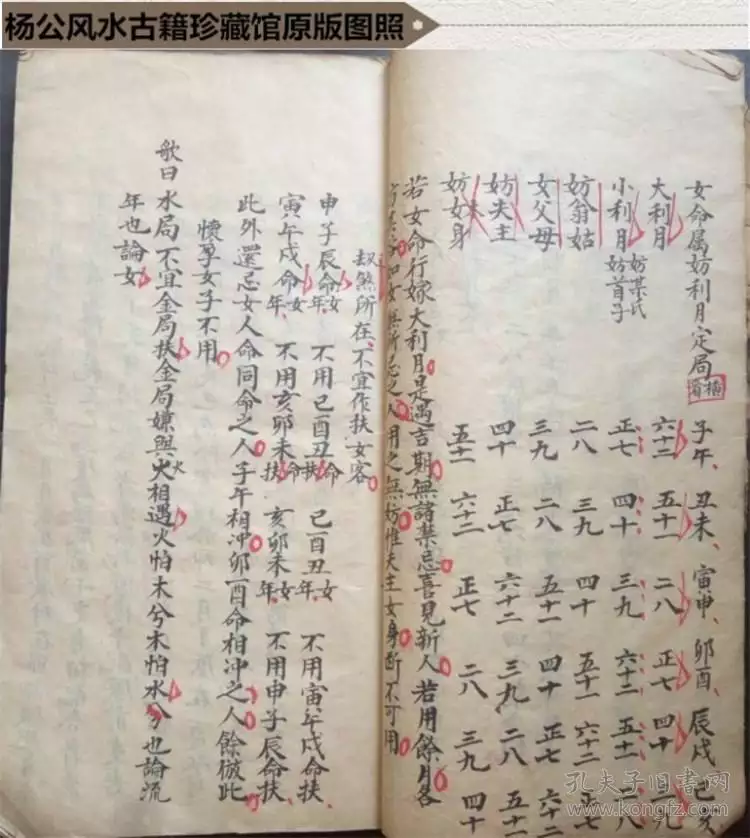 杨公风水古籍珍藏馆原版图照
女命属妨利月定局 橫看 子午、丑未、寅申、卯酉、辰戌、巳亥
大利月 六十二 五十一 二八 正七 四十 三九
小利月 妨某氏 妨首子 正七 四十 三九 六十二 五十一 二八
妨翁姑 二八 三九 四十 五十一 六十二 正七
女父母 三九 二八 五十一 四十 正七 六十二
妨夫主 四十 正七 六十二 三九 二八 五十一
妨女身 五十一 六十二 正七 二八 三九 四十
若女命行嫁大利月是遇吉期無諸禁忌喜見新人若用餘月各
如女無所忌之人用之無妨惟夫主女身断不可用
刼煞所在、不宜作扶女客
申子辰命女年、不用巳酉丑命扶 巳酉丑女年、不用寅午戌命扶、
寅午戌命女年、不用亥卯未命扶、亥卯未女年、不用申子辰命扶、
此外還忌女人命同命之人子午相冲卯酉命相冲之人餘倣此
懷孕女子不用
歌曰水局不宜金局扶金局嫌與火相遇火怕木兮木怕水兮也論流
年也論女
孔夫子旧书网
www.kongfz.com